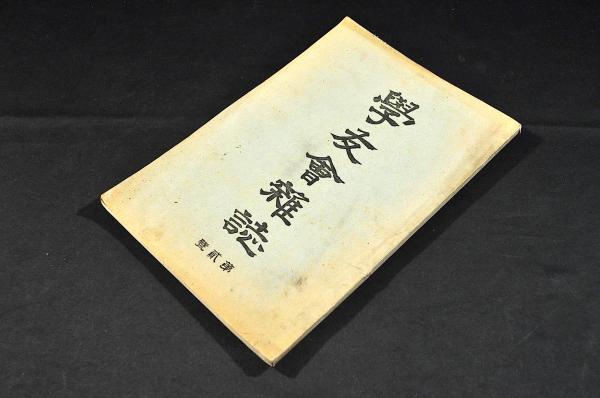 學友會雜誌
第貳號